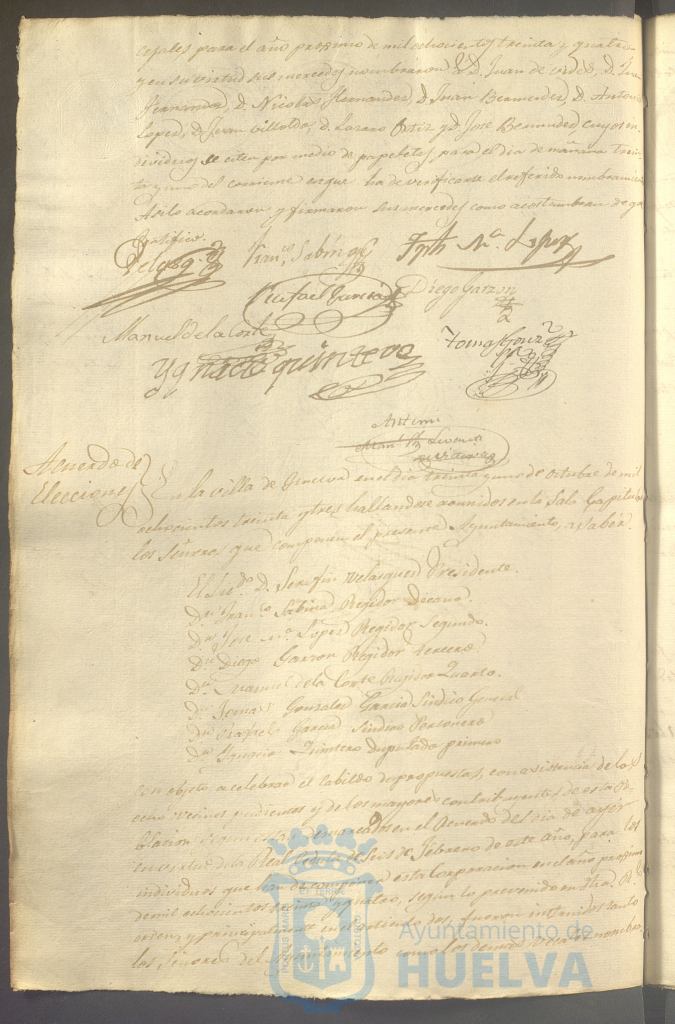 cejales para el año proximo de mil ochocientos treinta y quatro
y en su virtud sus mercedes nombraron á D. Juan de
Fernandez, D. Nicolas Hernandez, D. Juan Bermudez, D. Antonio
Lopez, D. Juan Villalda, D. Lazaro Ortiz y D. José Bermudez cuyos in
dividuos se citen por medio de papeletas, para el dia de mañana trein
ta y uno del corriente en que ha de verificarse el referido nombramien
Asi lo acordaron y firmaron sus mercedes como acostumbran de q.e
Certifico.
Velasq.z Fran.co Sabina Jph M.a Lopez
Rafael Garcia Diego Garzon
Manuel de la Corte Tomas Gonz
Ygnacio quintero
Acuerdo de
Elecciones
En la villa de Huelva en el dia treinta y uno de octubre de mil
ochocientos treinta y tres hallandose reunidos en la Sala Capitular
los Señores que componen el presente Ayuntamiento, a saber.
El Lic.do D. Serafin Velasquez Presidente.
D.n Fran.co Sabina Regidor Decano.
D.n José M.a Lopez Regidor Segundo.
D.n Diego Garzon Regidor tercero
D.n Manuel de la Corte Regidor Quarto.
D.n Tomas Gonzalez Garcia Sindico General
D.n Rafael Garcia Sindico Personero
D.n Ygnacio Quintero Diputado primero
con objeto a celebrar el Cabildo de propuestas, con asistencia de los
ocho vecinos pudientes y de los mayores contribuyentes de esta Po
blacion demarcados en el Acuerdo del dia de ayer
en virtud de la Real Cedula de Seis de Febrero de este año, para los
individuos que han de componer esta Corporacion en el año proximo
de mil ochocientos treinta y quatro, segun lo prevenido en dha R.l
orden, y principalmente en el articulo dos, fueron instruidos tanto
los Señores del Ayuntamiento como los demas vecinos nombra
Ayuntamiento de
HUELVA